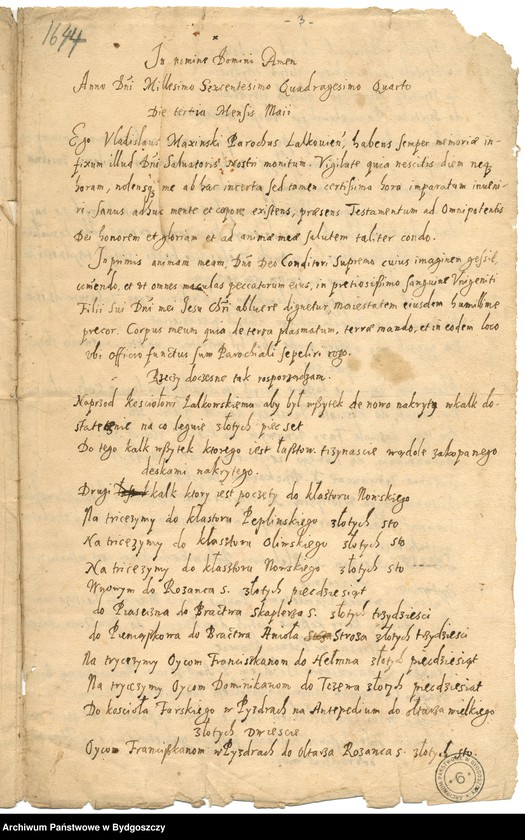 - 3 -
1644
In nomine Domini Amen
Anno Dni Millesimo Sexcentesimo Quadragesimo Quarto
Die tertia Mensis Maii
Ego Vladislaus Maxinski Parochus Lalkovien, habens semper memoriæ in-
fixum illud Dni Salvatoris Nostri monitum. Vigilate quia nescitis diem neq
horam, nolensq me ab hac incerta sed tamen certissima hora imparatum inveni-
ri, sanus adhuc mente et corpore existens, præsens Testamentum ad Omnipotentis
Dei honorem et gloriam et ad animæ meæ salutem taliter condo.
Inprimis animam meam, Dno Deo Conditori Supremo cuius imaginem gessit,
comendo, et ut omnes maculas peccatorum eius, in pretiosissimo sanguine Unigeniti
Filii Sui Dni mei Jesu Chri abluere dignetur, maiestatem eiusdem humilime
precor. Corpus meum quia de terra plasmatum, terræ mando, et in eodem loco
ubi officio functus sum Parochiali sepeliri rogo.
Rzeczy doczesne tak rosporządzam.
Naprzod kosciołowi Lalkowskiemu aby był wszytek de novo nakryty w kalk do-
statecznie na co leguie złotych pięc set
Do tego kalk wszytek ktorego iest łasztow trzynascie w dole zakopanego
deskami nakrytego.
Drugi kalk ktory iest poczęty do klasztoru Nowskiego
Na tricezymy do klasztoru Peplinskiego złotych sto
Na tricezymy do klasztoru Oliwskiego złotych sto
Na tricezymy do klasztoru Nowskiego złotych sto
W nowym do Rozanca s. złotych piecdziesiąt
do Piaseczna do Bractwa Skaplerza s. złotych trzydziesci
do Pieniąszkowa do Bractwa Anioła Stroza złotych trzydziesci
Na tryczymy Oycom Franciszkanom do Hełmna złotych piecdziesiąt
Na tryczymy Oycom Dominikanom do Tczewa złotych piecdziesiat
Do kosciola Farskiego w Pyzdrach na Antepedium do ołtarza wielkiego
złotych dwiescie
Oycom Franciszkanom w Pyzdrach do oltarza Rozanca s. złotych sto.
ARCHIWUM PAŃSTWOWE W BYDGOSZCZY
6
Archiwum Państwowe w Bydgoszczy